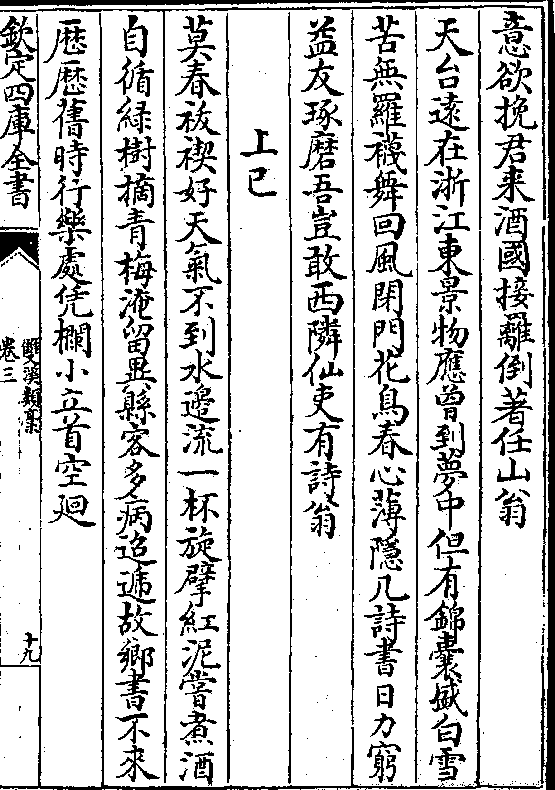 意欲挽君来酒國接䍦倒著任山翁
天台遠在浙江東景物應曽到夢中但有錦囊盛白雪
苦無羅襪舞回風閉門花鳥春心薄隱几詩書日力窮
益友琢磨吾豈敢西隣仙吏有詩翁
上巳
莫春祓禊好天氣不到水邉流一杯旋擘紅泥嘗煮酒
自循緑樹摘青梅淹留異縣客多病迢遞故鄉書不來
歴歴舊時行樂處凭欄小立首空廻
欽定四庫全書
雙溪類稾
卷三
十九